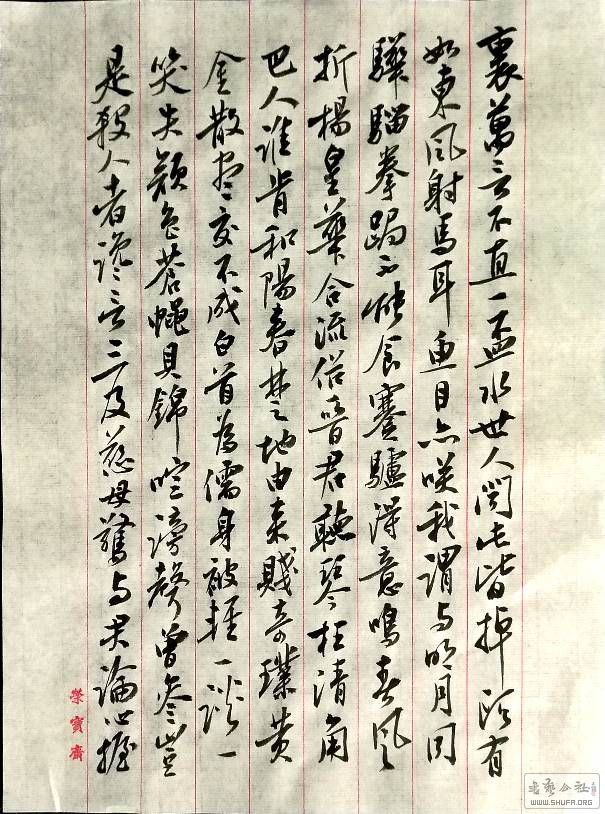 裏萬言不直一盃水世人聞此皆掉頭有
如東風射馬耳魚目亦咲我謂与明月同
驊騮拳跼不能食蹇驢得意鳴春風
折楊皇華合流俗晉君聽琴枉清角
巴人誰肯和陽春楚地由來賤奇璞黃
金散盡交不成白首為儒身被輕一談一
咲失顏色蒼蠅貝錦喧謗聲曾參豈
是殺人者讒言三及慈母驚与君論心握
榮寶齋
书艺公社
WWW.SHUFA.ORG